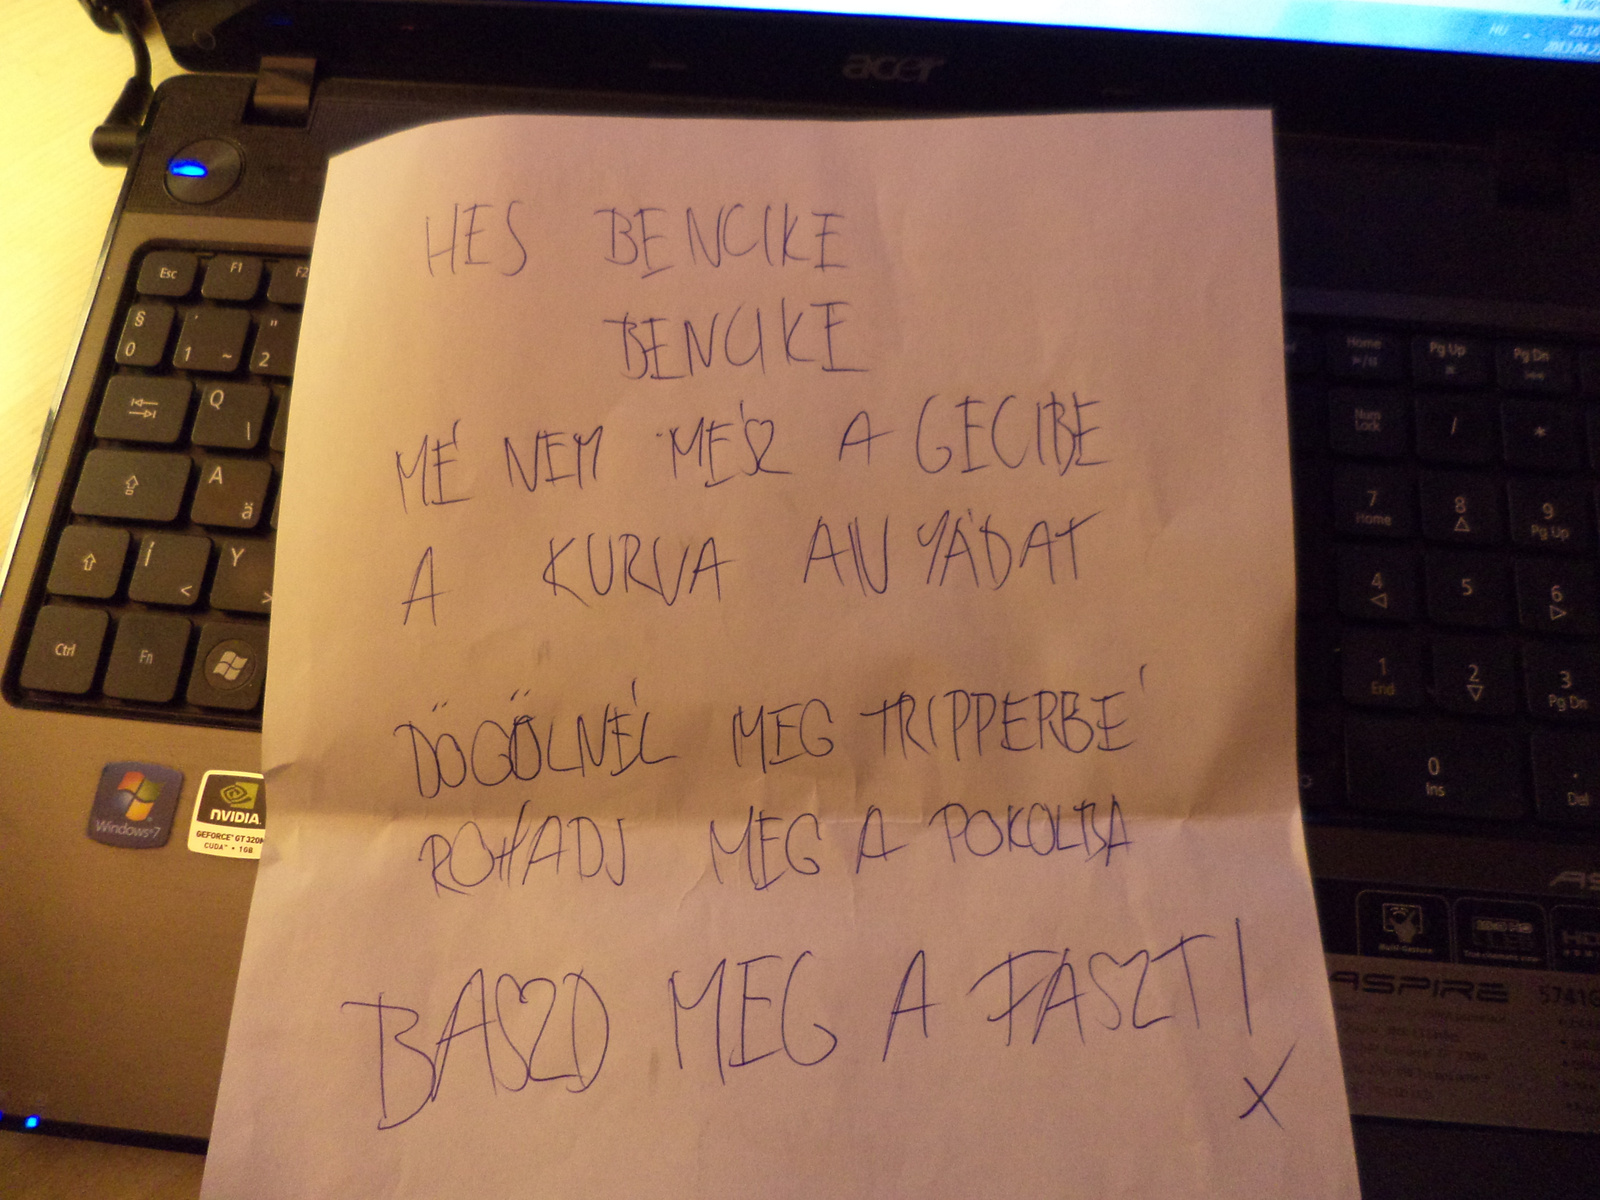 100%
HU
21:16
acer
HES BENCIKE
BENCIKE
MÉ NEM MÉSZ A GECIBE
A KURVA ANYÁDAT
DÖGÖLNÉL MEG TRIPPERBE'
ROHADJ MEG A POKOLBA
BASZD MEG A FASZT!
X
Esc
F1
F2
§
0
'
1 ~
"
2
Q
\
A
ä
Í
<
Y
>
Ctrl
Fn
Windows 7
NVIDIA
GEFORCE GT 320M
CUDA • 1GB
Home
Pg Up
Pg Dn
Num
Lock
/
*
7
Home
8
9
Pg Up
4
5
6
1
End
2
3
Pg Dn
0
Ins
.
Del
Multi-Gesture
HD
ASPIRE